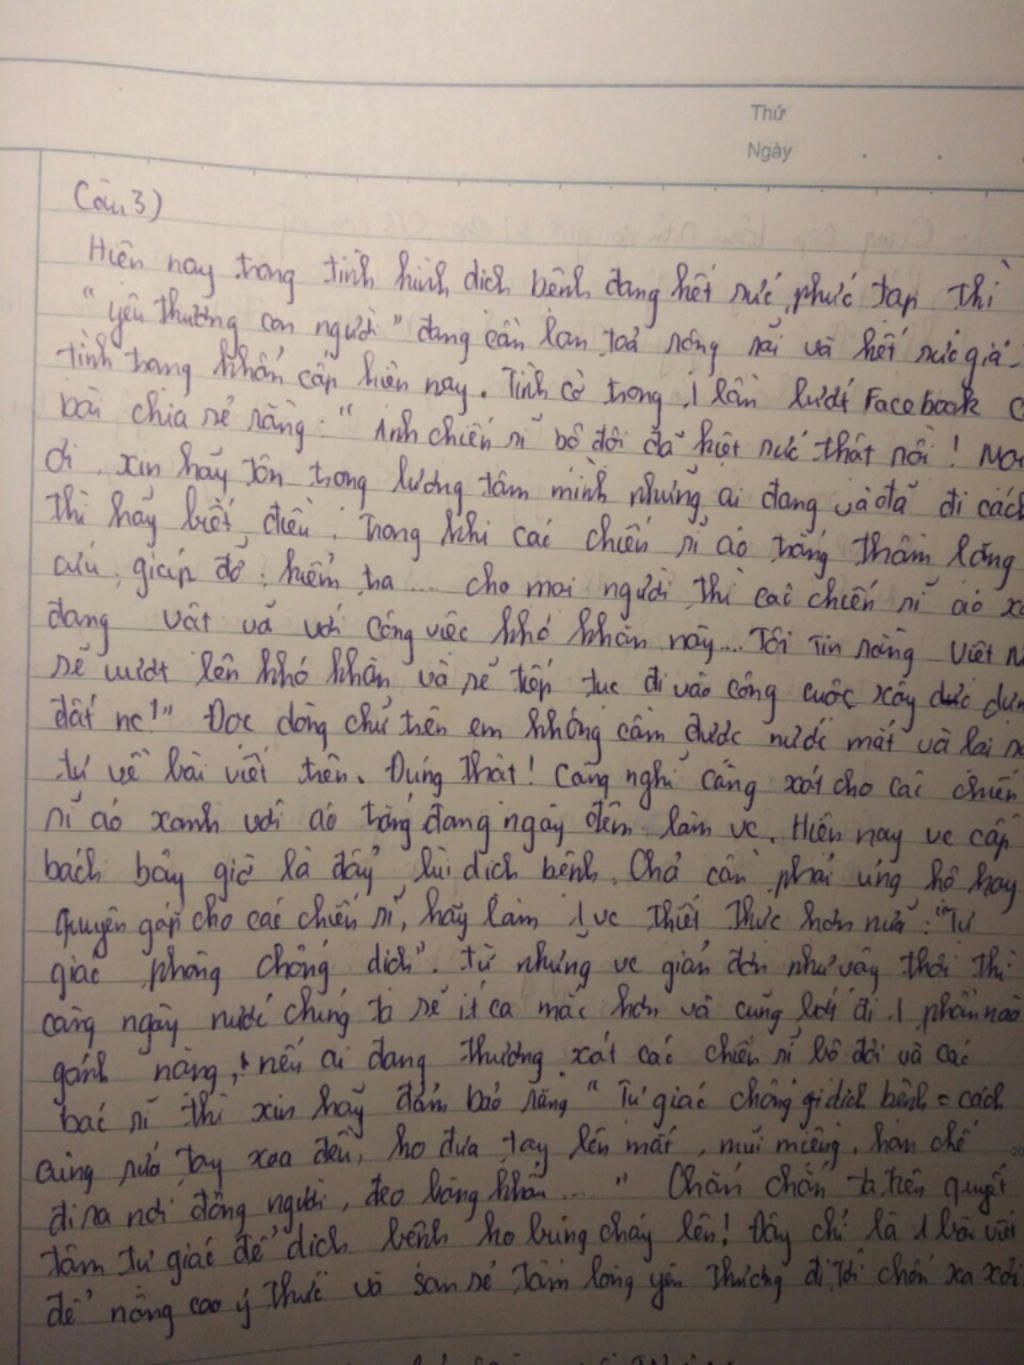 Thứ
Ngày
Câu 3)
Hiện nay trong tình hình dịch bệnh đang hết sức phức tạp thì
"yêu thương con người" đang cần lan toả rộng rãi và hết sức giá
tình trạng khẩn cấp hiện nay. Tình cờ trong 1 lần lướt Facebook
bài chia sẻ rằng: "Anh chiến sĩ bộ đội đã kiệt sức thật rồi!
ơi, xin hãy tôn trọng lương tâm mình những ai đang và đã đi cách
thì hãy biết điều. Trong khi các chiến sĩ áo trắng thầm lặng
cứu, giúp đỡ, kiểm tra .... cho mọi người thì các chiến sĩ áo
đang vất vả với công việc khó khăn này... Tôi tin rằng Việt
sẽ vượt lên khó khăn và sẽ tiếp tục đi vào công cuộc xây
đất nc!" Đọc dòng chữ trên em không cầm được nước mắt và lại
tư về bài viết trên. Đúng thật! Càng nghĩ càng xót cho các chiến
sĩ áo xanh với áo trắng đang ngày đêm làm vc. Hiện nay vc cấp
bách bây giờ là đẩy lùi dịch bệnh. Chả cần phải ủng hộ hay
quyên góp cho các chiến sĩ, hãy làm 1 vc thiết thực hơn nữa: "Tự
giác phòng chống dịch". Từ những vc giản đơn như vậy thôi thì
càng ngày nước chúng ta sẽ ít ca mắc hơn và cũng bớt đi 1 phần nào
gánh nặng, nếu ai đang thương xót các chiến sĩ bộ đội và các
bác sĩ thì xin hãy đảm bảo rằng "Tự giác chống dịch bệnh = cách
rửa tay xoa đều, ho đưa tay lên mắt, mũi miệng, hạn chế
đi ra nơi đông người, đeo băng khẩn ...." Chắn chắn ta, trên quyết
tâm tự giác để dịch bệnh ho bùng cháy lên! Đây chỉ là 1 bài viết
để nâng cao ý thức và san sẻ tấm lòng yêu thương đi tới chốn xa xôi